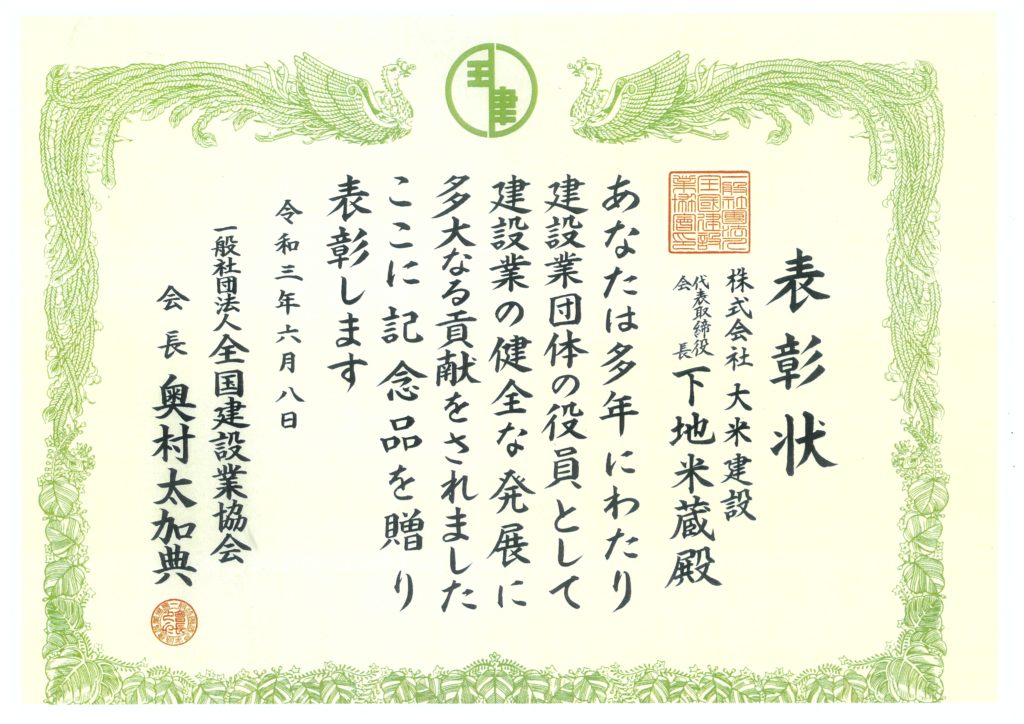 表彰状
株式会社 大米建設
代表取締役
会長
下地米蔵殿
あなたは多年にわたり
建設業団体の役員として
建設業の健全な発展に
多大なる貢献をされました
ここに記念品を贈り
表彰します
令和三年六月八日
一般社団法人全国建設業協会
会長 奥村太加典